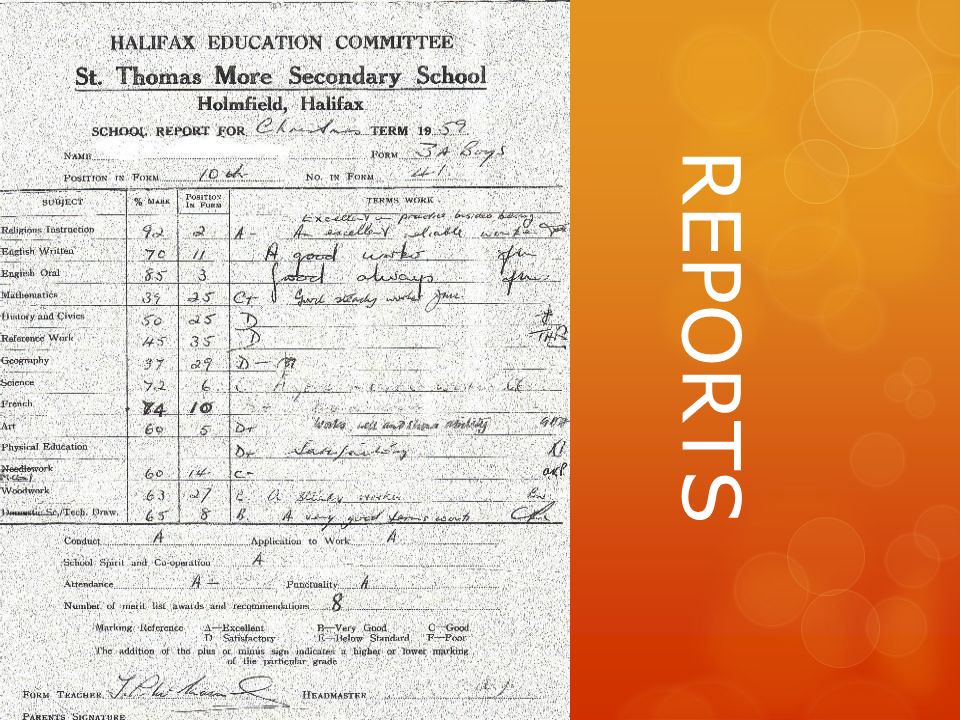 HALIFAX EDUCATION COMMITTEE
St. Thomas More Secondary School
Holmfield, Halifax
SCHOOL REPORT FOR Christmas TERM 19 59
NAME FORM 3A Boys
POSITION IN FORM 10th NO. IN FORM 41
SUBJECT % MARK POSITION IN FORM TERMS WORK
Excellent in practice besides being
Religious Instruction 92 2 A- An excellent reliable worker
English Written 70 11 A good worker
English Oral 85 3 Good always
Mathematics 39 25 C+ Good steady worker
History and Civics 50 25 D
Reference Work 45 35 D
Geography 37 29 D-
Science 72 6 C
French 74 10
Art 60 5 D+ Works well and shows
Physical Education D+ Satisfactory
Needlework 60 14 C-
Woodwork 63 27 A steady worker
Domestic Sc./Tech. Draw. 65 8 B. A very good terms work
Conduct A Application to Work A
School Spirit and Co-operation A
Attendance A- Punctuality A
Number of merit list awards and recommendations 8
Marking Reference A—Excellent B—Very Good C—Good
D Satisfactory E—Below Standard F—Poor
The addition of the plus or minus sign indicates a higher or lower marking
of the particular grade
FORM TEACHER HEADMASTER
PARENTS SIGNATURE
REPORTS